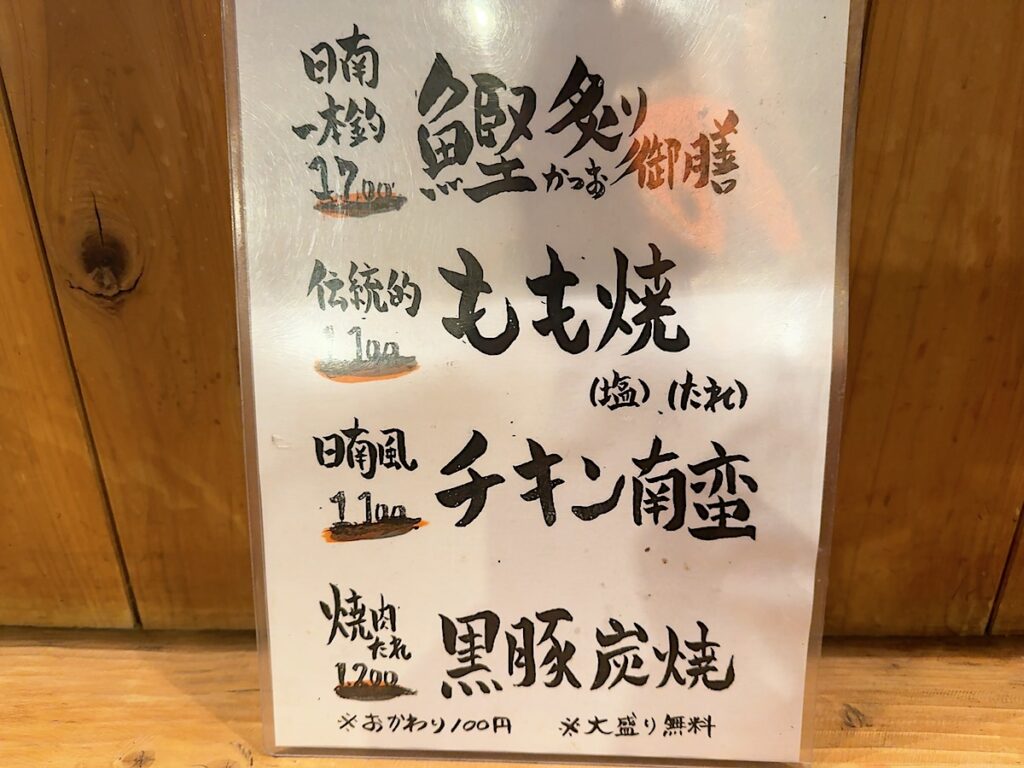 日南
一本釣
1700
鰹炙り
かつお
御膳
伝統的
1100
もも焼
(塩) (たれ)
日南風
1100
チキン南蛮
焼肉
たれ
1200
黒豚炭焼
※おかわり100円 ※大盛り無料